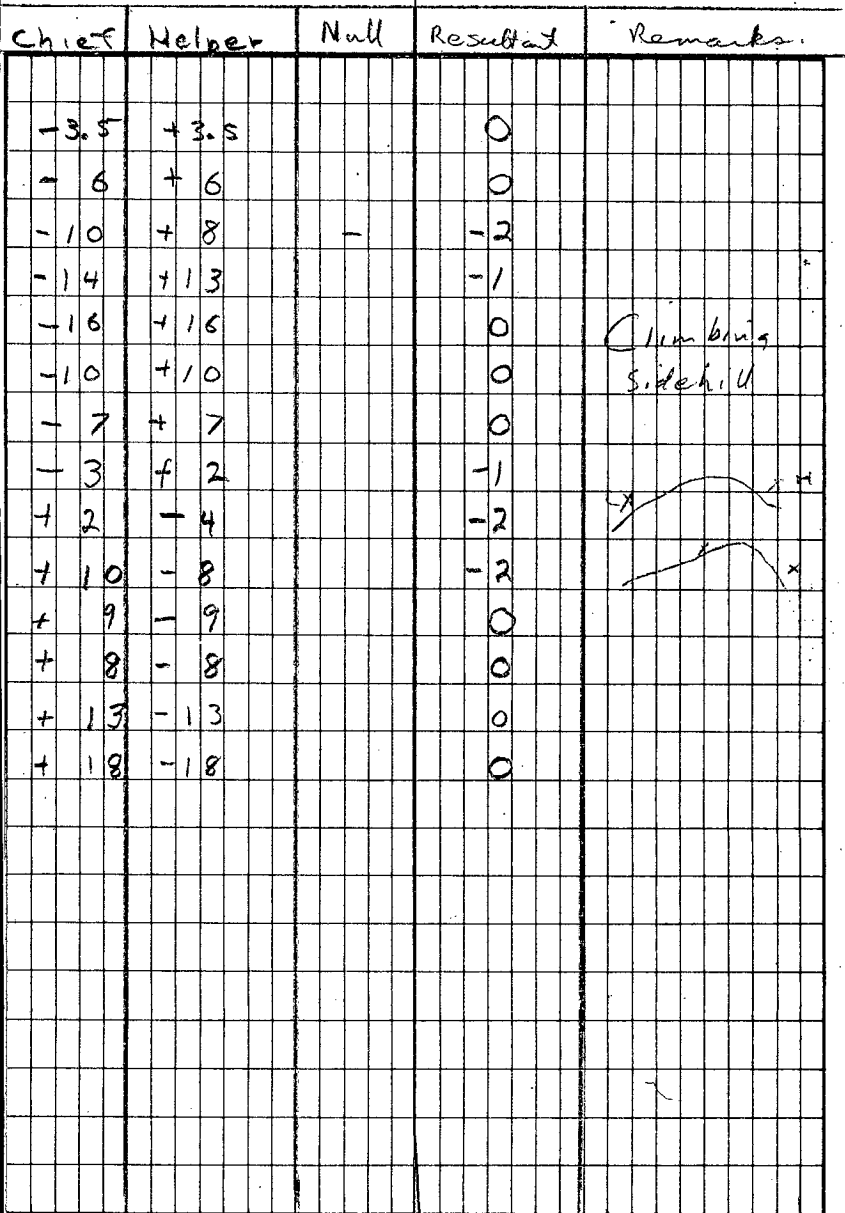 Chief Helper Null Resultant Remarks.
-3.5 +3.5 0
- 6 + 6 0
-10 + 8 - -2
-14 +13 -1
-16 +16 0 Climbing
-10 +10 0 Sidehill
- 7 + 7 0
- 3 + 2 -1
+ 2 - 4 -2
+ 10 - 8 -2
+ 9 - 9 0
+ 8 - 8 0
+ 13 -13 0
+ 18 -18 0